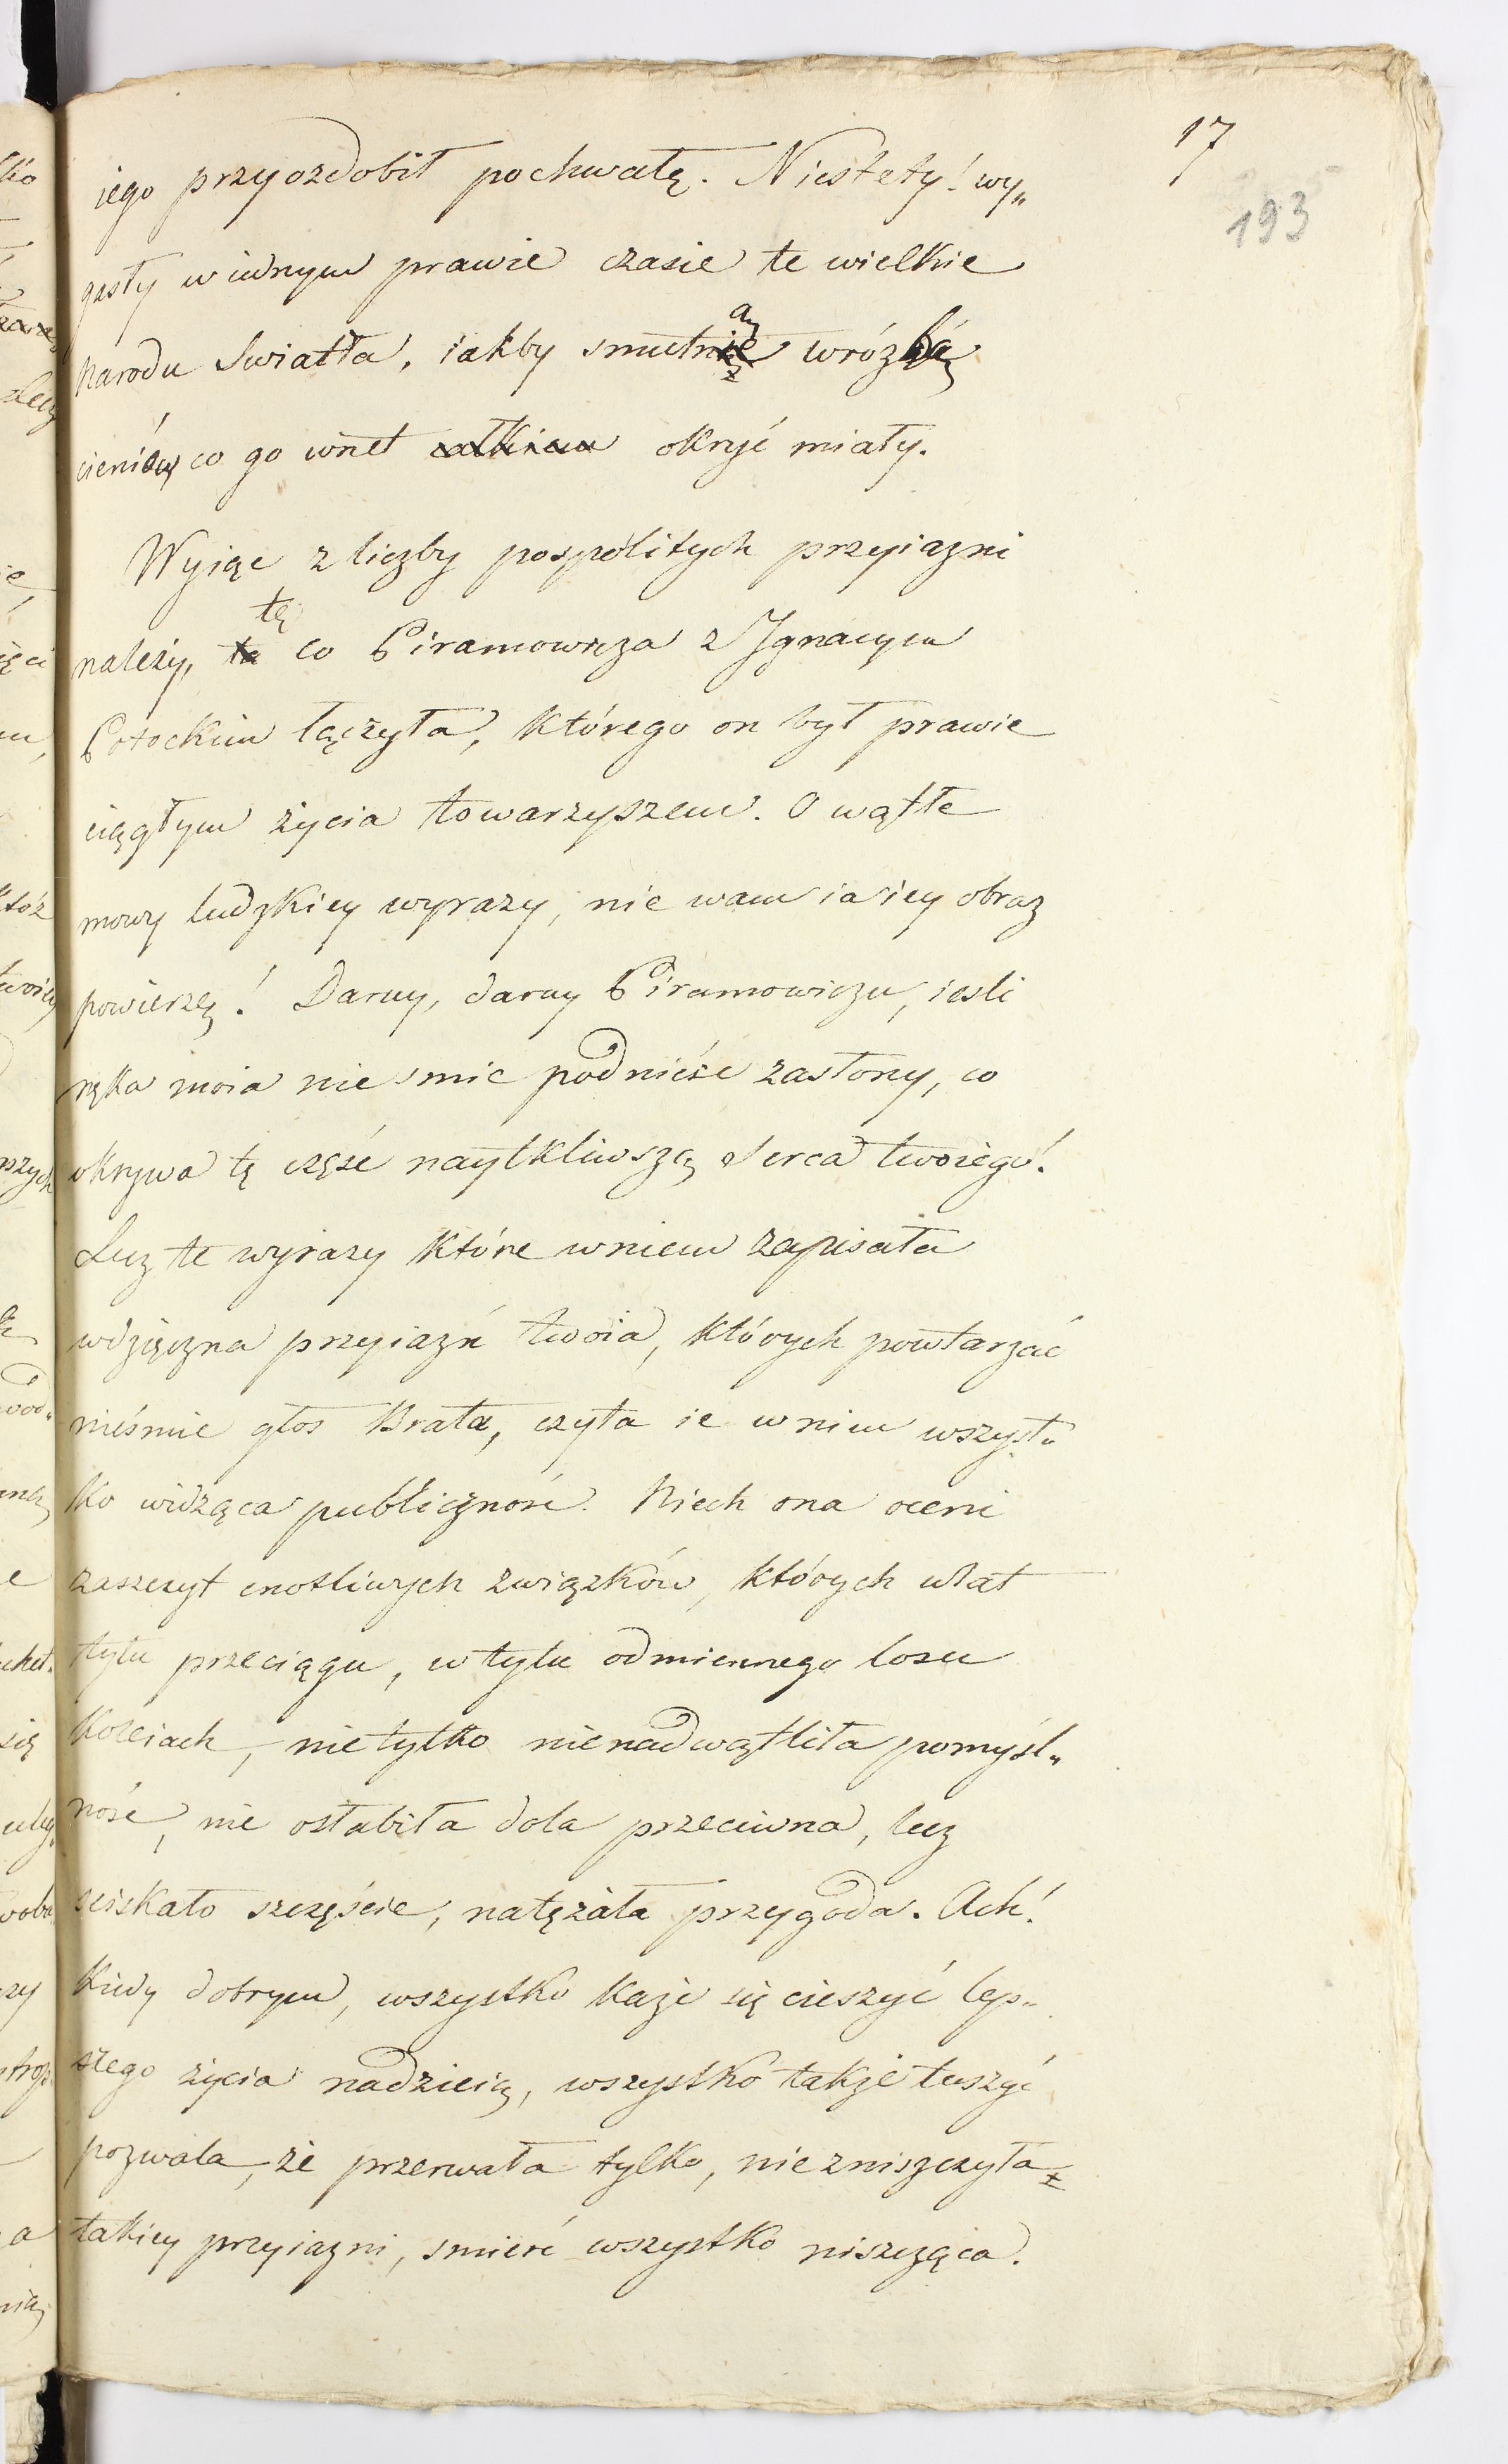 17
193
iego przyozdobił pochwałę. Niestety! wy„
gasły w iednym prawie czasie te wielkie
narodu Swiatła, iakby smutną wróżbą
cieniów co go wnet całkiem okryć miały.
Wyiąc z liczby pospolitych przyiazni
należy, tę co Piramowicza z Ignacym
Potockim łączyła, którego on był prawie
ciągłym życia towarzyszem. O wątłe
mowy ludzkiey wyrazy, nie wam ia iey obraz
powierzę! Daruy, daruy Piramowiczu, iesli
ręka moia nie smie podnieść zasłony, co
okrywa tę część naytkliwszą Serca twoiego!
Lecz te wyrazy które w niem zapisała
wdzięczna przyiaźń twoia, których powtarzać
nieśmie głos Brata, czyta ie w niem wszyst„
ko widząca publiczność. Niech ona oceni
zaszczyt cnotliwych związków, których w lat
tylu przeciągu, w tylu odmiennego losu
Koleiach, nie tylko nie nadwątliła pomyśl„
ność, nie osłabiła dola przeciwna, lecz
sciskało szczęście, natężała przygoda. Ach!
Kiedy dobrym, wszystko każe się cieszyć lep„
szego życia nadzieią, wszystko także tuszyć
pozwala, że przerwała tylko, nie zniszczyła
takiey przyiazni, smierć wszystko niszcząca.